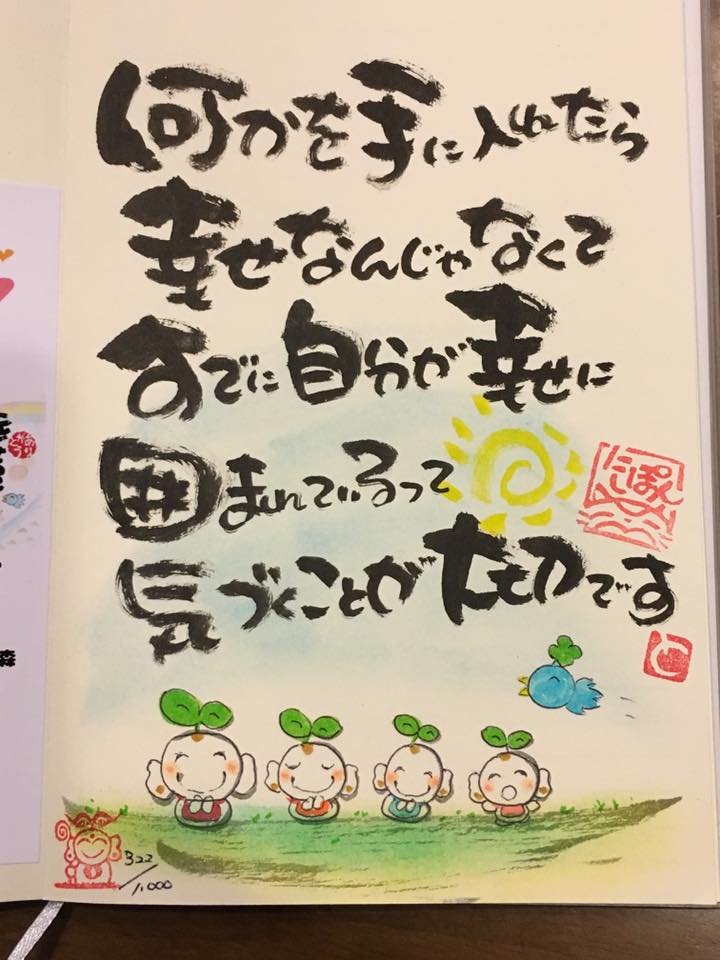 何かを手に入れたら
幸せなんじゃなくて
すでに自分が幸せに
囲まれているって
気づくことが大切です
にっぽん
と
322/1,000
森